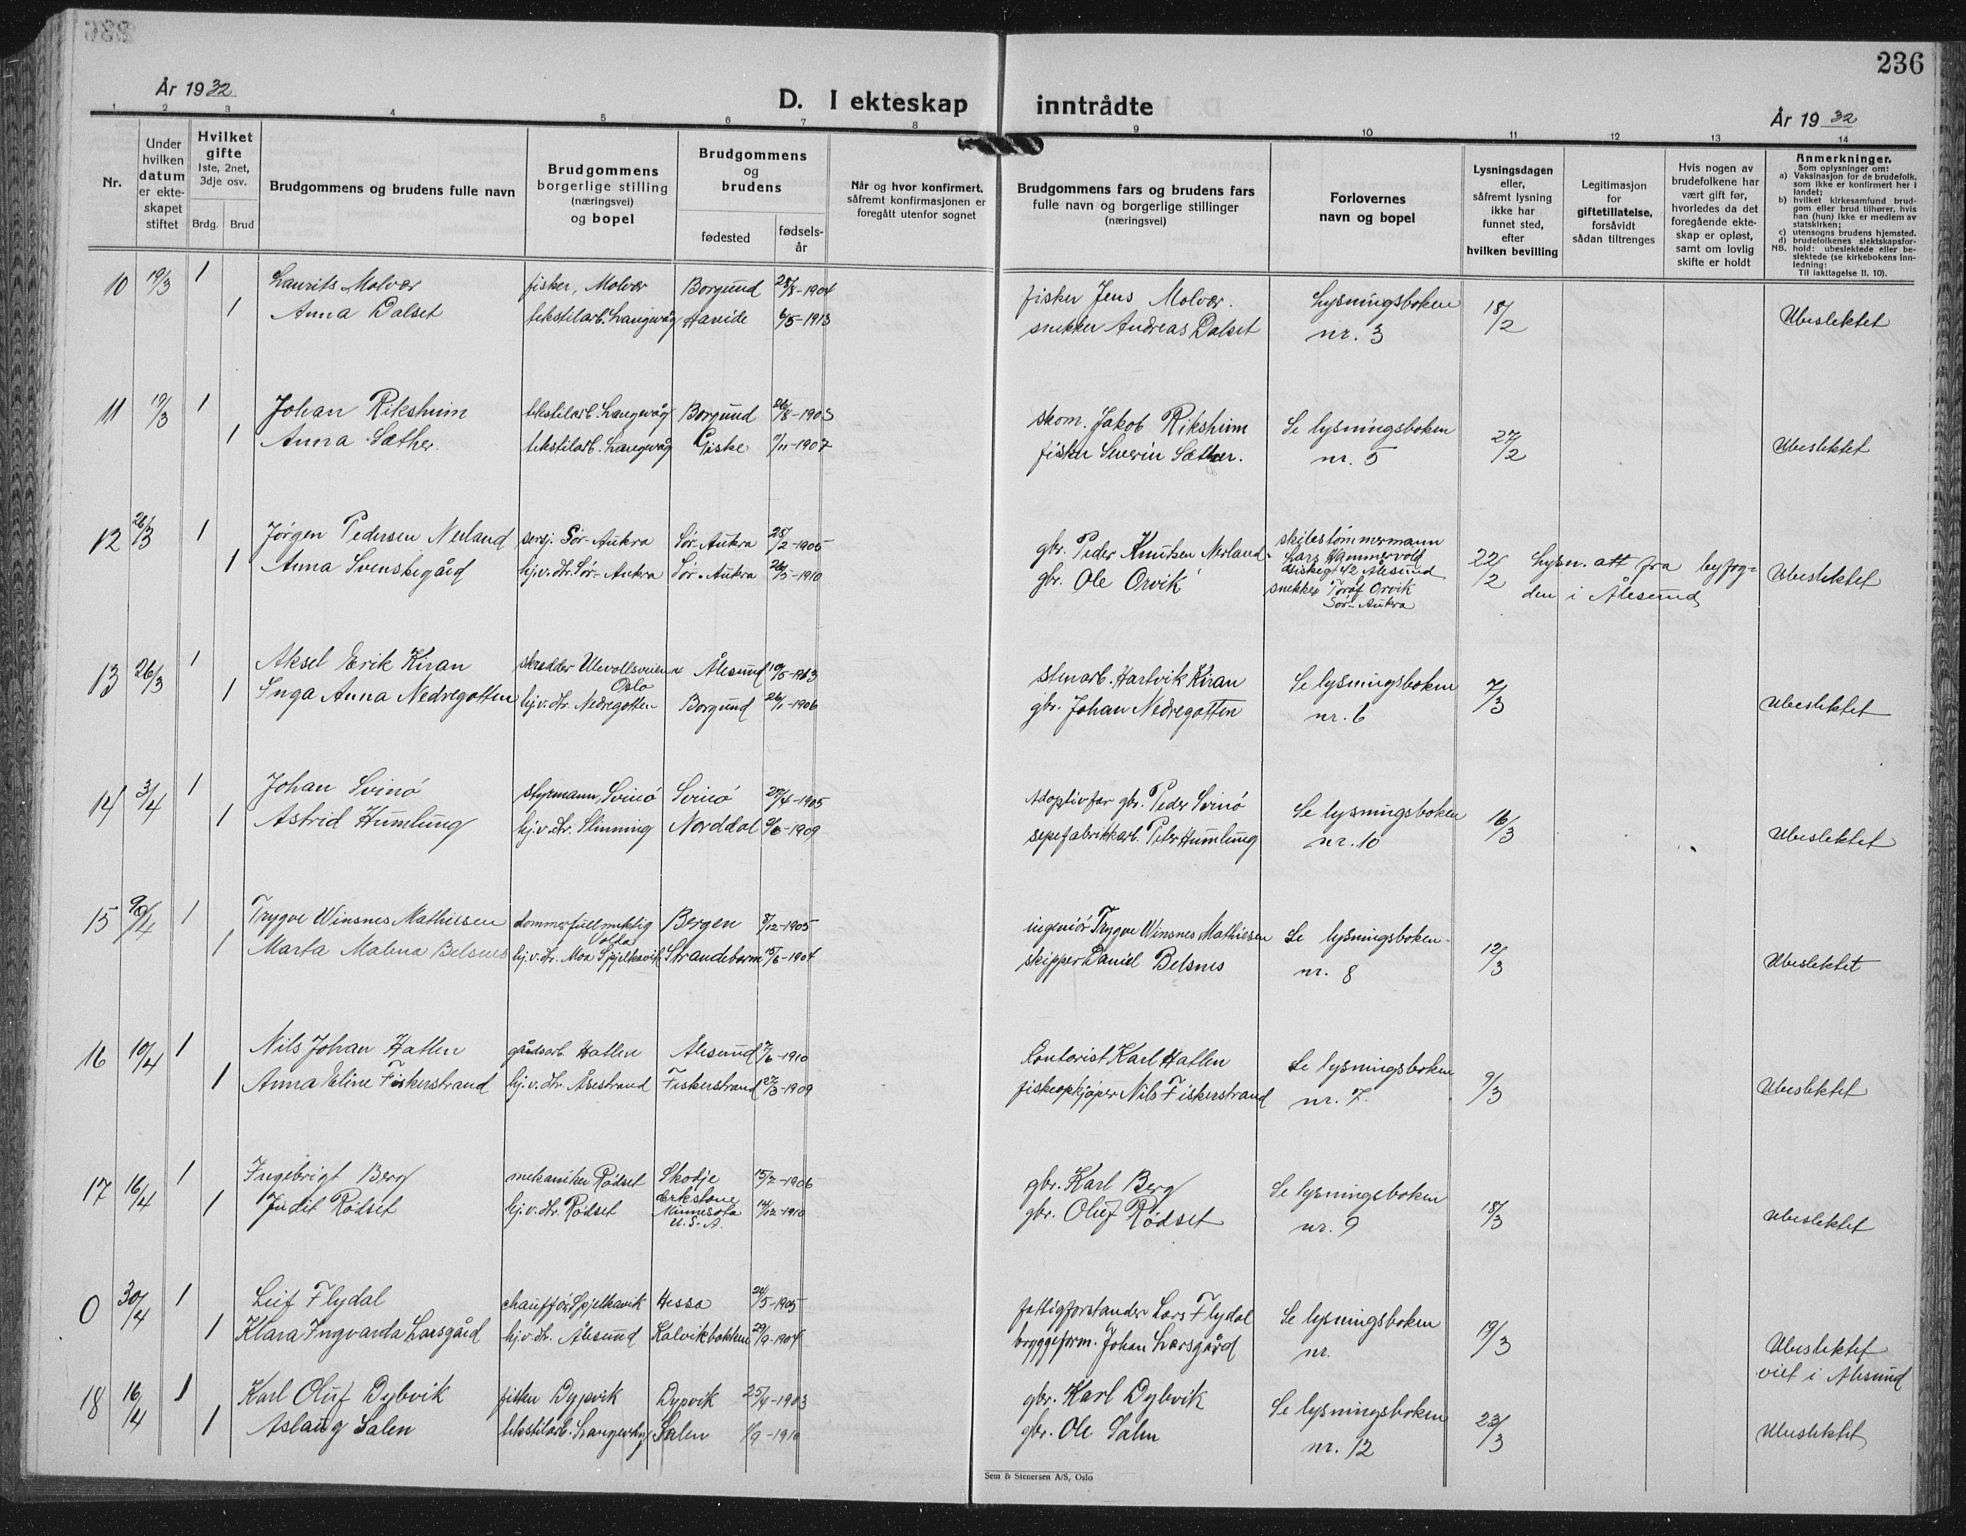 236
År 1932
D. I ekteskap inntrådte
År 1932
1 2 3 4 5 6 7 8 9 10 11 12 13 14
Nr.
Under hvilken datum er ekteskapet stiftet
Hvilket gifte
1ste, 2net, 3dje osv.
Brdg. Brud
Brudgommens og brudens fulle navn
Brudgommens borgerlige stilling (næringsvei) og bopel
Brudgommens og brudens
fødested
fødselsår
Når og hvor konfirmert, såfremt konfirmasjonen er foregått utenfor sognet
Brudgommens fars og brudens fars fulle navn og borgerlige stillinger (næringsvei)
Forlovernes navn og bopel
Lysningsdagen eller, såfremt lysning ikke har funnet sted, efter hvilken bevilling
Legitimasjon for giftetillatelse, forsåvidt sådan tiltrenges
Hvis nogen av brudefolkene har vært gift før, hvorledes da det foregående ekteskap er opløst, samt om lovlig skifte er holdt
Anmerkninger.
Som oplysninger om:
a) Vaksinasjon for de brudefolk, som ikke er konfirmert her i landet;
b) hvilket kirkesamfund brudgom eller brud tilhører, hvis han (hun) ikke er medlem av statskirken;
c) utensogns brudens hjemsted.
d) brudefolkenes slektskapsforhold: ubeslektede eller beslektede (se kirkebokens innledning:
NB.
Til iakttagelse II. 10).
10 19/3 1 Laurits Molvær fisker, Molvær Borgund 28/8-1904 fisker Jens Molvær. Lysningsboken 18/2
1 Anna Dalset tekstilarb. Langevåg Havide 6/5-1913 snekker Andreas Dalset nr. 3 Ubeslektet
11 19/3 1 Johan Riksheim tekstilarb. Langevåg Borgund 26/8-1903 skom. Jakob Riksheim Se lysningsboken 27/2
1 Anna Sæther. tekstilarb. Langevåg Giske 7/11-1907 fisker Severin Sæther. nr. 5 Ubeslektet
12 26/3 1 Jørgen Pedersen Nerland sersj. Sør-Aukra Sør-Aukra 28/2-1905 gbr. Peder Knutsen Nerland skibstømmermann Lars Hammervold 42 Ålesund 22/2 Lysn. att fra byfog-
1 Anna Svenskegård hj.v.hr. Sør-Aukra Sør-Aukra 26/5-1910 gbr. Ole Orvik snekker Orvik Sør-Aukra den i Ålesund Ubeslektet
13 26/3 1 Aksel Erik Kiran skredder Ulevollsveien Oslo Ålesund stenarb. Hartvik Kiran Se lysningsboken 7/3
1 Inga Anna Nedregotten hj.v.hr. Nedregotten Borgund 26/11-1906 gbr. Johan Nedregotten nr. 6 Ubeslektet
14 3/4 1 Johan Svinø styrmann, Svinø Svinø 27/4-1905 Adoptivfar gbr. Peder Svinø Se lysningsboken 16/3
1 Astrid Humlung hj.v.hr. Slinning Norddal 9/6-1909 sepefabrikkarb. Peter Humlung nr. 10 Ubeslektet
15 9/4 1 Trygve Winsnes Mathiesen dommerfullmektig Volda Bergen 8/12-1905 ingeniør Trygve Winsnes Mathiesen Se lysningsboken 12/3
1 Marta Malena Belsnes hj.v.hr. Moa Spjelkavik Strandebarm 15/6-1904 skipper Daniel Belsnes nr. 8 Ubeslektet
16 10/4 1 Nils Johan Hatlen gårdsarb. Hatlen Ålesund 7/6-1910 Contorist Karl Hatlen Se lysningsboken 9/3
1 Anna Eline Fiskerstrand hj.v.hr. Åsestrand Fiskerstrand 27/3-1909 fiskeopkjøper Nils Fiskerstrand nr. 7. Ubeslektet
17 16/4 1 Ingebrigt Berg mekaniker Rødset Skodje 15/2-1906 gbr. Karl Berg Se lysningsboken 18/3
1 Judit Rødset hj.v.hr. Rødset Minnesota U.S.A. 14/12-1910 gbr. Oluf Rødset nr. 9 Ubeslektet
0 30/4 1 Leif Flydal chauffør Spjelkavik Hessa 24/5-1905 fattigforstander Lars Flydal Se lysningsboken 19/3
1 Klara Ingvarda Larsgård hj.v.hr. Ålesund Kalvikbakken 29/9-1904 bryggeform. Johan Larsgård nr. Ubeslektet
viet i Ålesund
18 16/4 1 Karl Oluf Dybvik fisker Dypvik Dypvik 25/4-1903 gbr. Karl Dybvik Se lysningsboken 23/3
1 Aslaug Salen tekstilarb. Langevåg Salen 1/9-1910 gbr. Ole Salen nr. 12 Ubeslektet
Sem & Stenersen A/S, Oslo